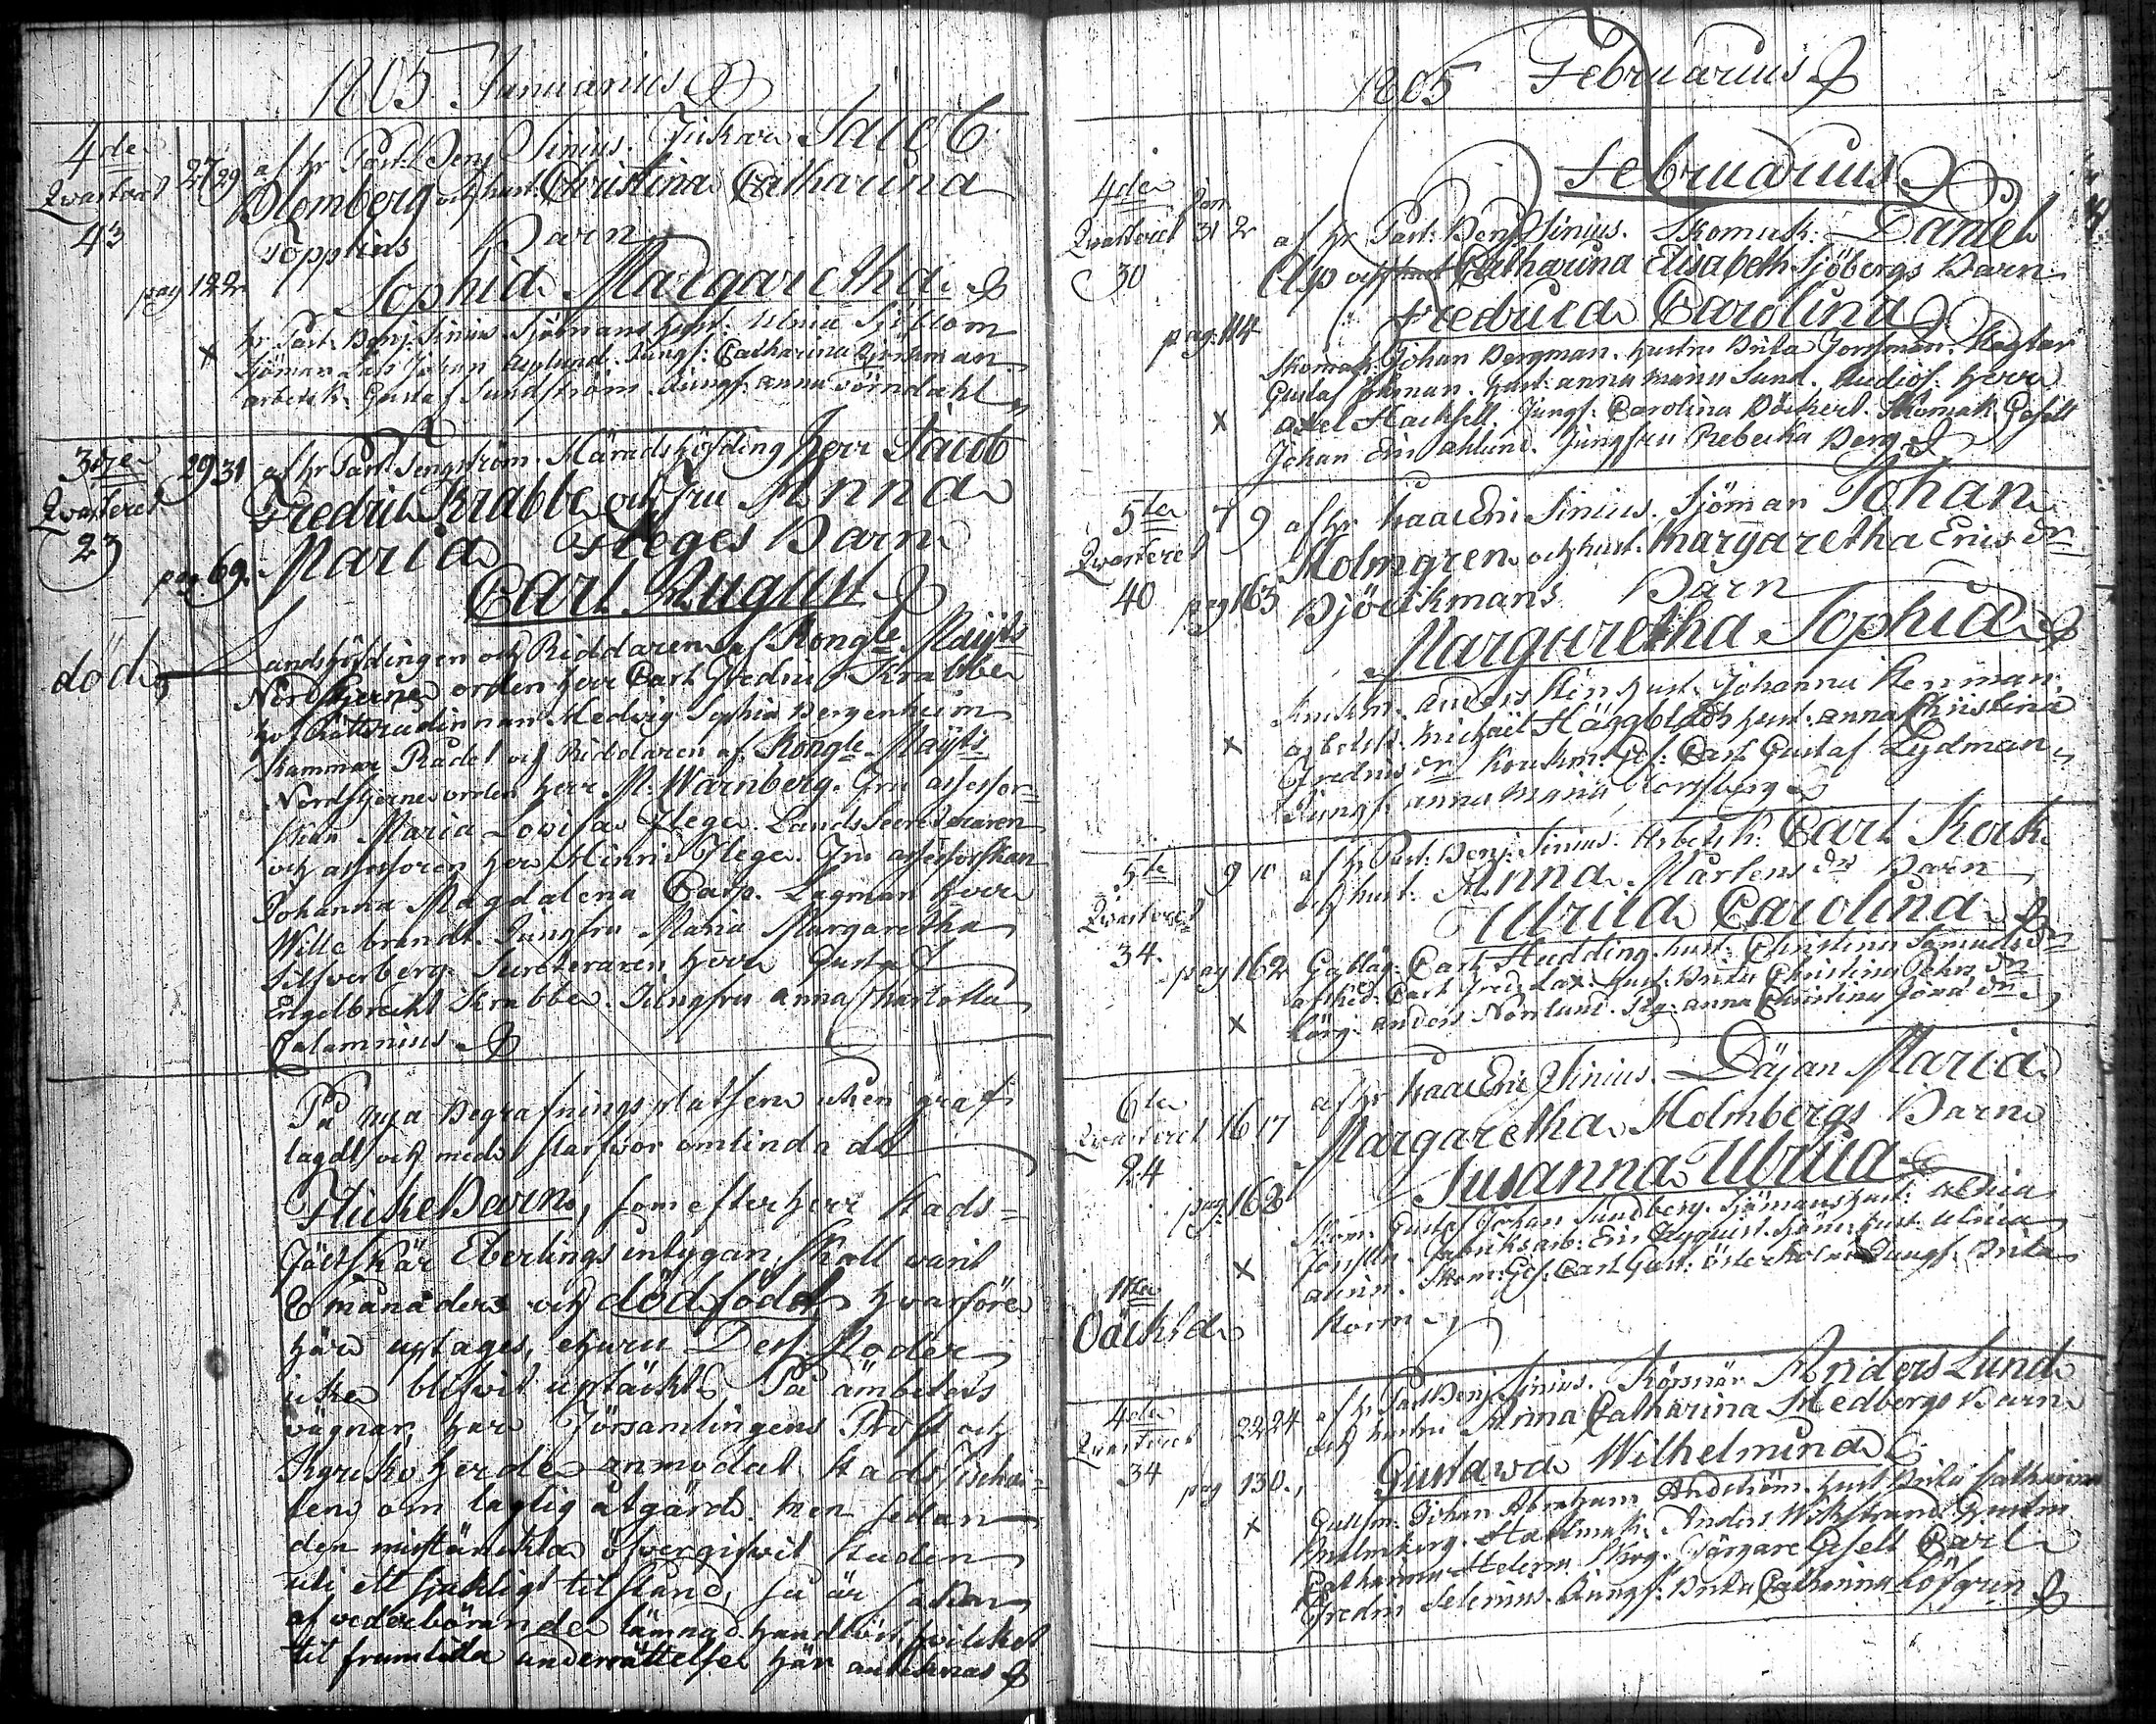 1805 Januarius
4de
Qvarteret
43
27 29
af hr Past: Benj Sinius. Fiskare Jacob
Blomberg och hust: Christina Catharina
Toppelias Barn
pag 122
Sophia Margaretha
hr Past. Benj. Sinius Sjömans hust: Ulrica Sjöblom
x
Sjöman Lars Johan Asplund. Jungf: Catharina Björkman
arbetsk. Gustaf Sundström. Jungf. Anna Törndahl
3dje
Qvarteret
23
29 31
af hr Past Tengström. Häradshöfding Herr Jacob
Fredric Krabbe och Fru Anna
Maria Fleges Barn
pag. 69.
Carl August
död
Landshöfdingen och Riddaren af Kongle Maijts
Nordstjerne orden herr Carl Fredric Krabbe
hofRättsrådinnan Hedwig Sophia Bergenheim
Kammar Rådet och Riddaren af Kongle Maijts
Nordstjerne orden herr M. Wärnberg. Fru assessor=
skan Maria Lovisa Flege. LandsSecreteraren
och assessoren herr Hinric Flege. Fru assessorskan
Johanna Magdalena Carp. Lagman herr
Wille brandt. Jungfru Maria Margaretha
Silfverberg. Secreteraren herr Gustaf
Engelbrecht Krabbe. Jungfru anna Charlotta
Calamnius
På nya Begrafningsplatsen uthen graf
lagdt och med Skarfvor omlinda dt
FlickeBarn, som efter herr Stads=
Fältskär Eberlings intygan, skall varit
8 månader och dödfödt hvarföre
här uptages, ehuru Dess Moder
icke blifvit uptäckt. På ämbetets
vägnar har Församlingens Prost och
Kyrkoherde anmodat Stadsfischa=
len om laglig åtgärd. Men sedan
den misstänckta öfvergifvit Staden
uti ett sjukligt tilstånd, så är saken
af vederbörande lämnad handlös, hvilcket
til framtida underrättelse här antecknas
1805 Februarius
Februarius
4de
Qvarteret
30
Jan.
31 2
af hr Past: Benj Sinius. Skomak: Daniel
Asp och hust Catharina Elisabeth Sjöbergs Barn
pag. 114
Fredrica Carolina
Skomak: Johan Bergman. hustru Brita Forssman. Slagtar
Gustaf hust: anna Maria Sund. Studios: Herr
x
axel Hacksell. Jungf: Carolina Böckert. Skomak. Gesell
Johan Eric ahlund. Jungfru Rebecka Berg
5te
Qvarteret
40
7 9
af hr Isaac Eric Sinius. Sjöman Johan
Holmgren och hust. Margaretha Erics dr
Björckmans Barn
pag 163
Margaretha Sophia
anders Sten hust. Johanna Stenman
x
arbetsk. Michael Häggblad hust. anna Christina
Fredrics dr Ges: Carl Gustaf Lydman
Jungf: anna Maria Forssberg
5te
Qvarteret
34.
9 10
af hr Past: Benj. Sinius. Arbetsk: Carl Kock
och hust: Anna Mårtens dr Barn
Ulrica Carolina
pag 162
Carl Hedding hust: Christina Samuels dr
afsked: Carl Fred: Lax. hust. Brita Christina Pehrs dr
x
anders Norrlund. Pig: anna Christina Jöns dr
6te
Qvarteret
24
16 17
af hr Isaac Eric Sinius. Däjan Maria
Margaretha Holmbergs Barn
pag: 168
Susanna Ulrica
Skom: Gustaf Johan Sundberg. Sjömans hust: Ulrica
Forsstén. Fabriksarb: Eric Nyquist. Sjöm: hust: Ulrica
x
Skom: Ges: Carl Gust: Österholm Jungf: Brita
Storm
Oäckta
4de
Qvarteret
34
22 24
af hr Past Benj. Sinius. Körsnär Anders Lund
och hustru Anna Catharina Hedbergs Barn
pag 130.
Gustava Wilhelmina
Gullsm: Johan Abraham hust. Brita Catharina
x
Malmberg. Hattmak. Anders Wikstrand. hustru
Catharina Färgare Gesell Carl
Fredric Selenius. Jungf: Brita Catharina Löfgren